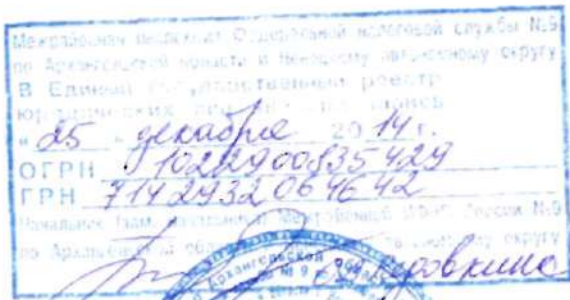 Межрайонная инспекция Федеральной налоговой службы №9
по Архангельской области и Ненецкому автономному округу
В Единый государственный реестр
юридических лиц внесена запись
" 25 " декабря 20 14 г.
ОГРН 1022900835429
ГРН 7142932064642
Начальник (зам. начальника) Межрайонной ИФНС России №9
по Архангельской области и Ненецкому автономному округу
Архангельской
№ 9